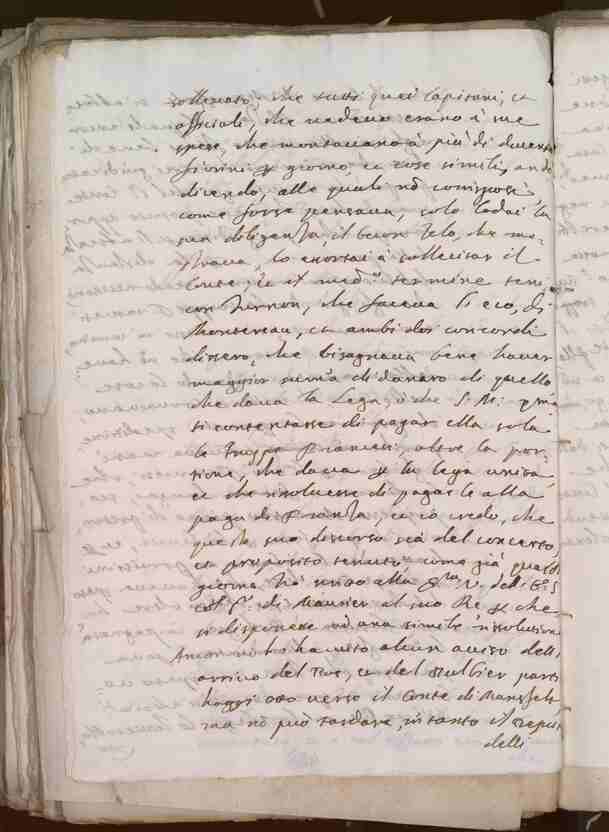 sollevato, che tutti quei Capitani, et
offitiali, che vedevo erano à sue
spese, che montavano à più di ducento
fiorini al giorno et cose simili, an
dicendo, alle quali nõ corrisposi
come forse pensava, solo lodai la
sua diligenza, il buon zelo, che mo-
strava, lo exortai à sollecitar il
Conte,
con Vernon, che faceva l'eco, di
Montereau, et ambi doi concordi
dissero, che bisognava bene haver
maggior summa di danaro di quello
che dava la Lega, ò che S. M.
si contentasse di pagar ella sola
le truppe Francesi, oltre la por-
tione, che dava la lega unita,
et che risolvesse di pagarle alla
paga di Franza, et io credo, che
questo suo discorso sia del concerto,
et proposito tenuto, come già quindi
giorni hà scritto alla V.
di Mansier al suo Re che
si disponesse ad una simile risolutione
Ancor nõ hò havuto alcun aviso dell'
arrivo del et del parti
hoggi otto verso il Conte di Mansfelt
ma nõ può tardare, in tanto il
delli